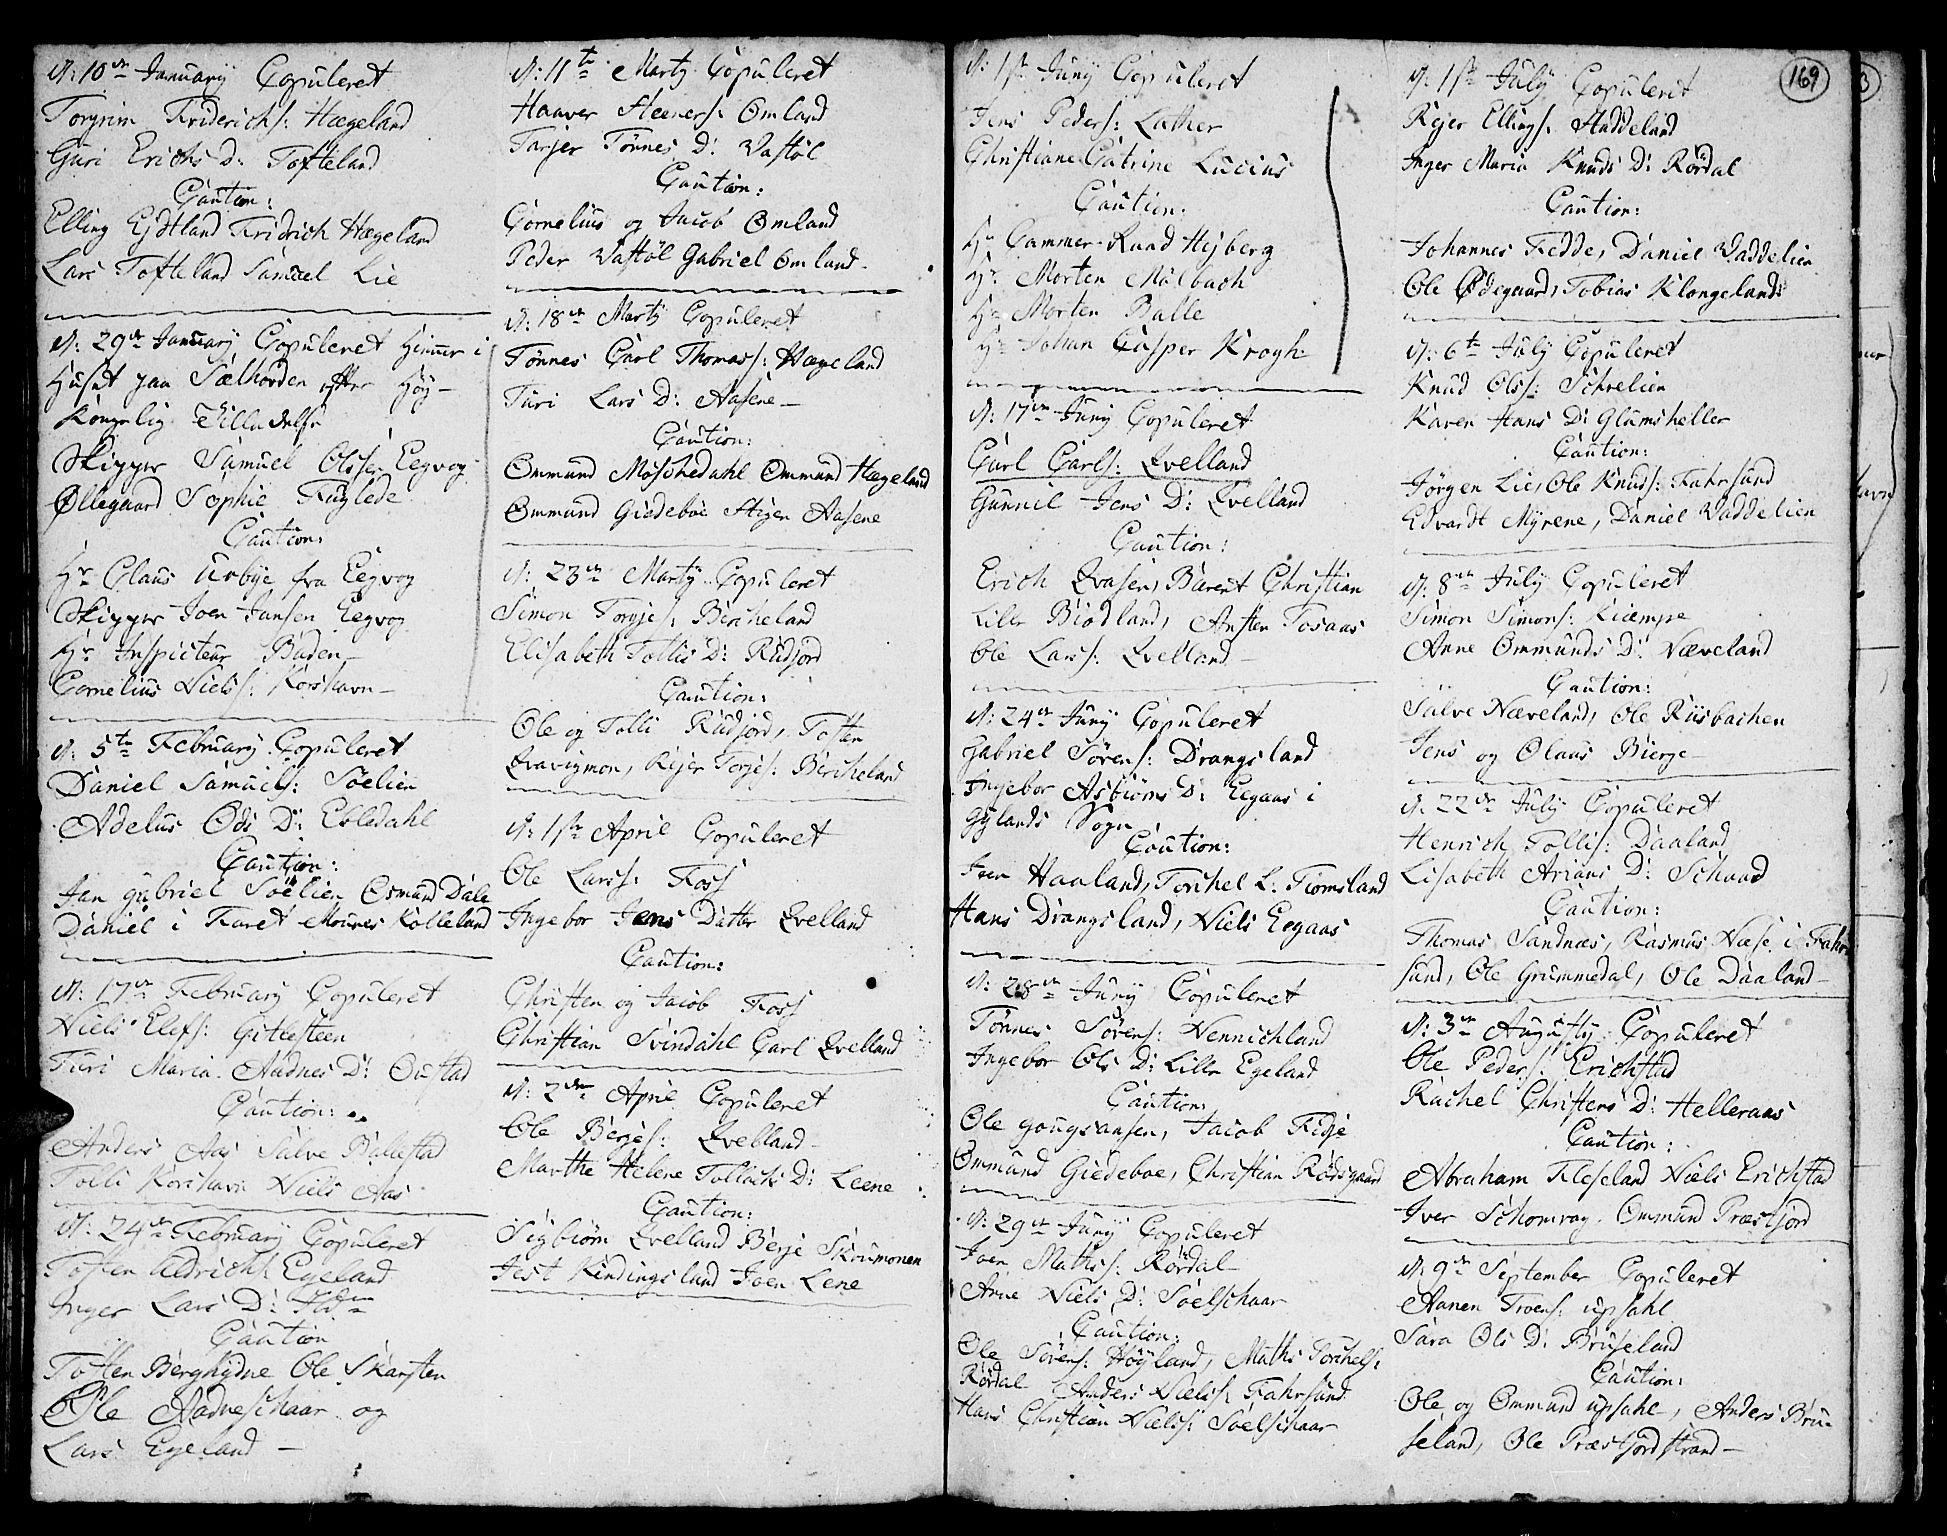 d: 10de January Copuleret
Torgrim Friderichs: Hægeland
Guri Erichs D: Tofteland
Caution:
Elling Ejdtland Fridrich Hægeland
Lars Tofteland Samuel Lie
d: 29de January Copuleret hiemme i
Huset paa Sælhovden efter Høy-
Kongelig Tilladelse
Skipper Samuel Olssen Eegvog
Øllegaard Sophie Fuglede
Caution:
Hr Claus Urbye fra Eegvog
Skipper Joen Jansen Eegvog
Hr Inspecteur Buden
Cornelius Niels: Korshavn
d: 5te February Copuleret
Daniel Samuels: Søelien
Adelus Ods D: Ebledahl
Caution:
Jan gabriel Søelien Osmund Dale
Daniel i Faret Mounes Kolleland
d: 17de February Copuleret
Niels Elefs: Gitlesteen
Turi Maria Audnes D: Oustad
Caution:
Anders Aas Salve Ballestad
Tolli Korshavn Niels Aas
d: 24de February Copuleret
Tosten Aldrichs: Egeland
Inger Lars D:
Caution
Tosten Berghydne Ole Skarsten
Ole Aadneschaar og
Lars Egeland
d: 11te Marty Copuleret
Haaver Steeners: Omland
Tarjer Tønnes D: Vastøl
Caution:
Cornelius og Jacob Omland
Peder Vastøl Gabriel Omland
d: 18de Marty Copuleret
Tønnes Carl Thomass: Hægeland
Turi Lars D: Aasene
Caution:
Ommund Moschedahl Ommund Hægeland
Ommund Giedeboe Stigen Aasene
d: 23de Marty Copuleret
Simon Torgjes: Bircheland
Elisabeth Tollis D: Rudjord
Caution:
Ole og Tolli Rudjord, Tosten
Qvavigmon, Rejer Torjes: Bercheland
d: 1ste April Copuleret
Ole Larss: Foss
Ingebor Jens Datter Qvelland
Caution:
Christen og Jacob Foss
Christian Svindahl Carl Qvelland
d: 2den April Copuleret
Ole Berjes: Qvelland
Marthe Helene Tollachs D: Leene
Caution:
Sigbiørn Qvelland Berje Skoumonen
Jest Kindingsland Joen Lene
d: 1ste Juny Copuleret
Jens Peders: Lather
Christiane Catrine Lucius
Caution:
Hr Cammer-Raad Hejberg
Hr Morten Mølbach
Hr Morten Balle
Hr Johan Casper Krogh
d: 17de Juny Copuleret
Carl Carls: Qvelland
Gunnil Jens D: Qvelland
Caution:
Erich Qvasen, Barent Christian
Lille Biødland, Austen Tosaas
Ole Lars: Qvelland
d: 24de Juny Copuleret
Gabriel Sørens: Drangsland
Ingebor Asbiørns D: Eegaas i
Gylands Sogn
Caution:
Iver Haaland, Torchel L: Tiomsland
Hans Drangsland, Niels Eegaas
d: 28de Juny Copuleret
Tønnes Sørens: Hennichland
Ingebor Ols D: Lille Egeland
Caution:
Ole , Jacob Fidje
Ommund Giedeboe, Christian Rødsgaard
d: 29de Juny Copuleret
Joen Mathss: Rørdal
Anne Niels D: Søelschaar
Caution:
Ole Sørens: Høyland, Maths Torchels:
Rørdal Anders Niels: Fahrsund
Hans Christian Nielss: Søelschaar
169
d: 1ste July Copuleret
Rejer Ellings: Haddeland
Inger Maria Knuds D: Rørdal
Caution:
Johannes Fedde, Daniel Vaddelien
Ole Ødegaard, Tobias Klongeland
d: 6te July Copuleret
Knud Olss: Schrelien
Karen Hans D: Glumsheller
Caution:
Jørgen Lie, Ole Knuds: Fahrsund
Edvardt Myrene, Daniel Vaddelien
d: 8de July Copuleret
Simon Simons: Kiæmpe
Anne Ommunds D: Næveland
Caution:
Salve Næveland, Ole Riisbachen
Jens og Olaus Bierge
d: 22de July Copuleret
Henrich Tollis: Daaland
Lisabeth Arians D: Schaad
Caution:
Thomas Sandnæs, Rasmus Næse i Fahr
sund, Ole Grummedal, Ole Daaland
d: 3de Augusty Copuleret
Ole Peders: Erichstad
Rachel Christens D: Helleraas
Caution:
Abraham Fleseland Niels Erichstad
Iver Schomrag Ommund Præstjord
d: 9de September Copuleret
Aanen Troens: upsahl
Sara Ols D: Bruseland
Caution:
Ole og Ommund upsahl, Anders Bru-
seland, Ole Præstjord strand